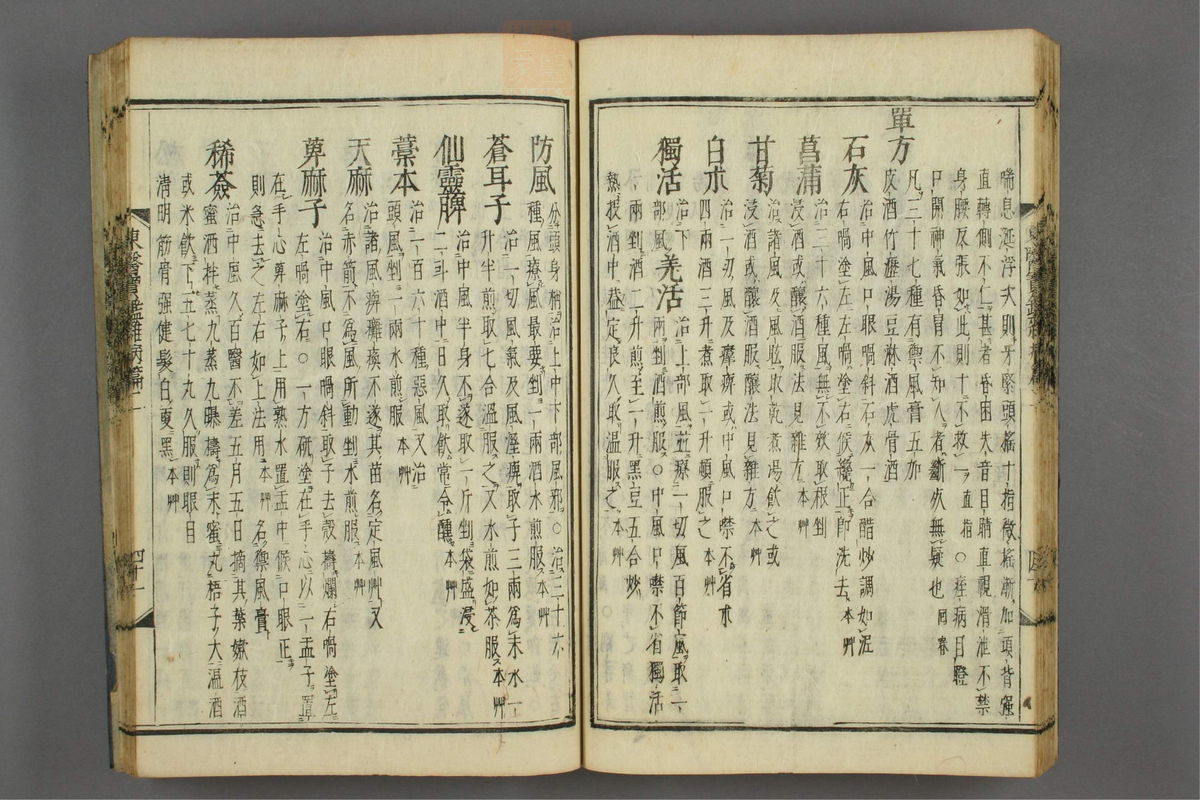 喘息涎浮大則牙緊頭搖十指微搖漸加頭背强
直轉側不仁甚者昏困失音目睛直視滑泄不禁
身腰反張如此則十不救一直指○痓病目瞪
口開神氣昏冒不知人者斷疾無疑也回春
單方
凡二十七種有禦風膏五加
皮酒竹瀝湯豆淋酒虎骨酒
石灰
治中風口眼喎斜石灰一合醋炒調如泥
右喎塗左左喎塗右候纔正卽洗去本艸
菖蒲
治三十六種風無不效取根剉
浸酒或釀酒服法見雜方本艸
甘菊
治諸風及風眩取乾煮湯飮之或
浸酒服或釀酒服釀法見雜方本艸
白朮
治一切風及痺或中風口噤不省朮
四兩酒三升煮取一升頓服之本艸
獨活
治下部風
羌活
治上部風並療一切風百節風取二
兩剉酒煎服○中風口噤不省獨活
一兩剉酒二升煎至一升黑豆五合炒
熱投酒中益定良久取溫服之本艸
防風
分頭身梢治上中下部風邪○治三十六
種風療風最要剉一兩酒水煎服本艸
蒼耳子
治一切風氣及風溼痺取子三兩爲末水一
升半煎取七合溫服之又水煎如茶服本艸
仙靈脾
治中風半身不遂取一斤剉袋盛浸
二斗酒中日久取飮常令醺本艸
藁本
治一百六十種惡風又治
頭風剉一兩水煎服本艸
天麻
治諸風痺癱瘓不遂其苗名定風艸又
名赤箭不爲風所動剉水煎服本艸
萆麻子
治中風口眼喎斜取子去殼擣爛右喎塗左
左喎塗右○一方硏塗在手心以一盂子置
在手心萆麻子上用熱水置盂中候口眼正
則急去之左右如上法用本艸名禦風膏
稀薟
治中風久百醫不差五月五日摘其葉嫰枝酒
蜜洒拌蒸九蒸九曝擣爲末蜜丸梧子大溫酒
或米飮下五七十丸久服則眼目
淸明筋骨强健髮白更黑本艸
東醫寶鑑雜病篇二
四十一